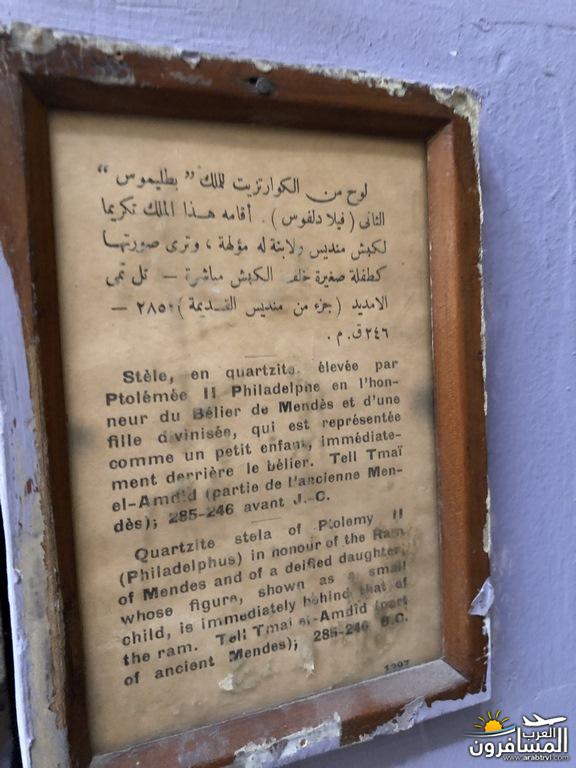 لوح من الكوارتزيت للملك " بطليموس "
الثانى ( فيلادلفوس ) . أقامه هذا الملك تكريما
لكبش منديس ولابنة له مؤلهة ، وترى صورتها
كطفلة صغيرة خلف الكبش مباشرة — تل تمى
الامديد ( جزء من منديس القديمة ) ٢٨٥ —
٢٤٦ ق . م .
Stèle, en quartzite élevée par
Ptolémée II Philadelphe en l'hon-
neur du Bélier de Mendès et d'une
fille divinisée, qui est représentée
comme un petit enfant, immédiate-
ment derrière le bélier. Tell Tmaï
el-Amdid (partie de l'ancienne Men-
dès); 285-246 avant J.-C.
Quartzite stela of Ptolemy II
(Philadelphus) in honour of the Ram
of Mendes and of a deified daughter
whose figure, shown as a small
child, is immediately behind that of
the ram. Tell Tmai el-Amdid (part
of ancient Mendes); 285-246 B.C.
1297
العرب
المسافرون
www.arabtrvl.com